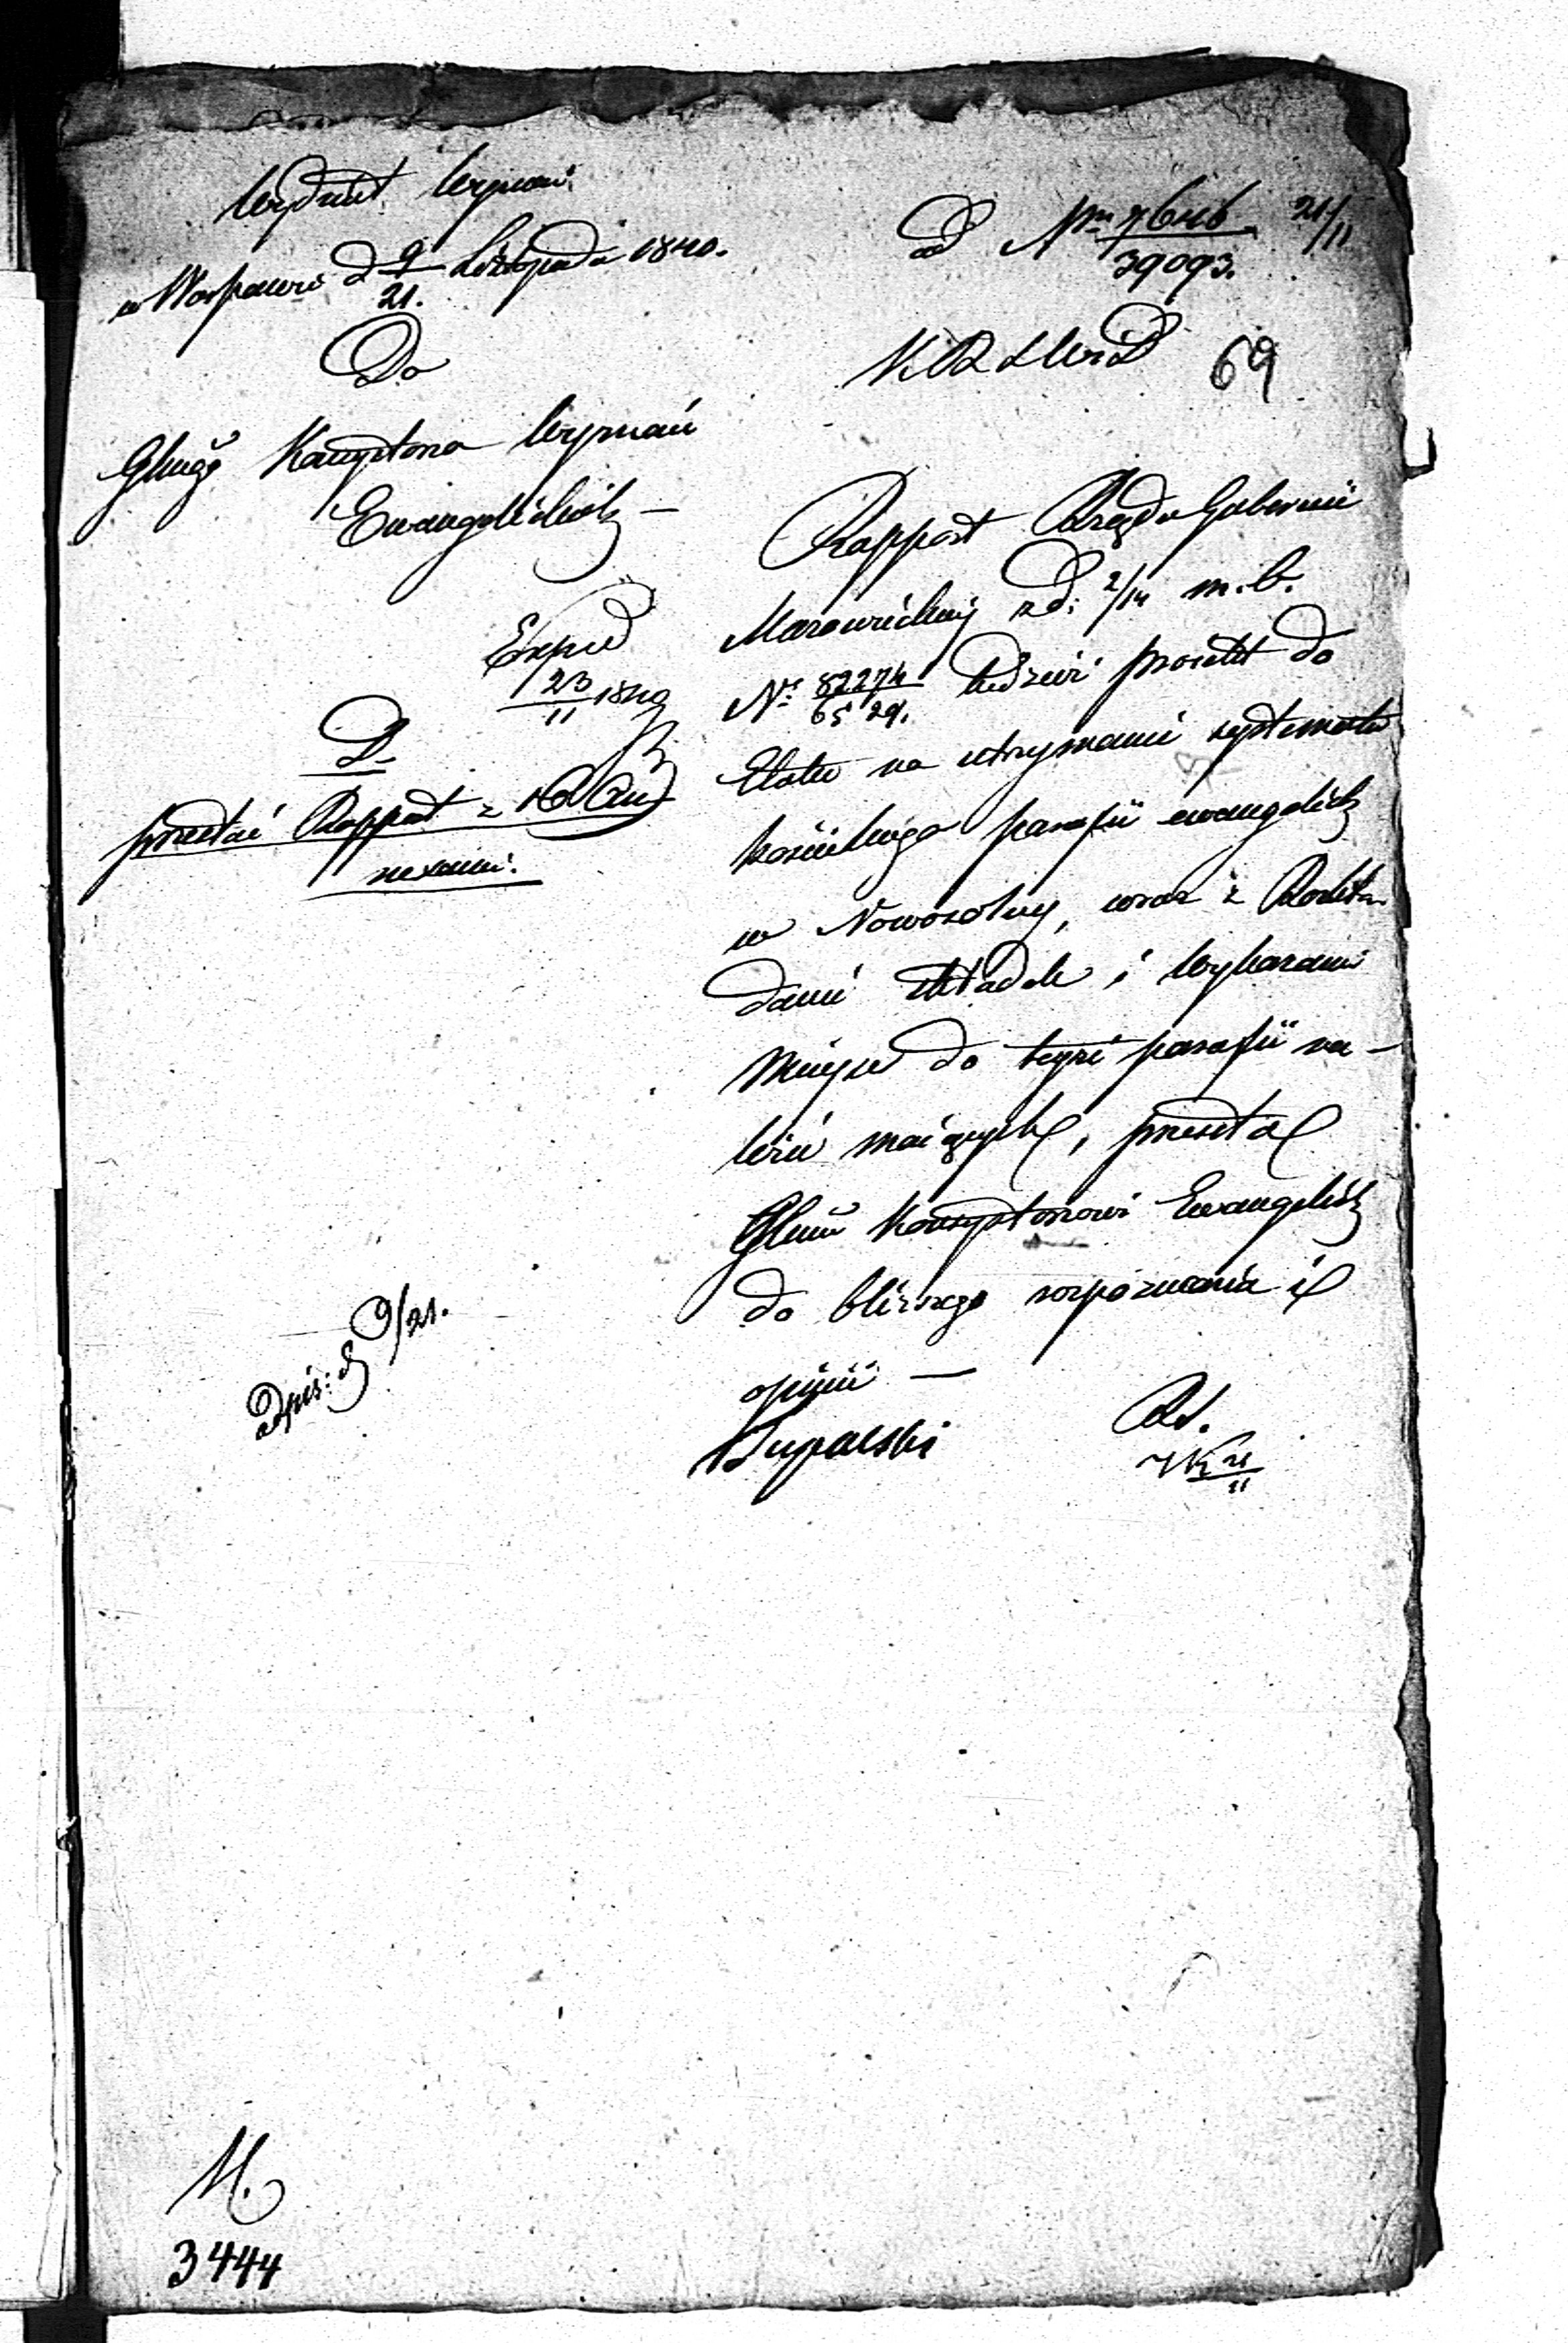 Wydział Wyznań
w Warszawie d 9/21. Listopada 1840.
Do
Głnegο Konsystorza Wyznań
Ewangelickich —
Exped
23/11 1840
D.
przesłać Rapport z
nexami.
ad Nru 7646/39093. 21/11
K R S W i D
69
Rapport Rządu Gubernii
Mazowieckiej z d: 2/14 m. b.
Nr 82274/6529. tudzież proiekt do
Etatu na utrzymanie systematu
kościelnego parafii ewangelick
w Nowosolny, wraz z Rozkła-
dami składek i Wykazami
Mieysc do teyże parafii na-
leżeć maiących, przesłać
Głnu Konsystorzowi Ewangelick
do bliższego rozpoznania i
opinii —
Tupalski
Rd.
21/11
odpis: d 9/21.
M.
3444